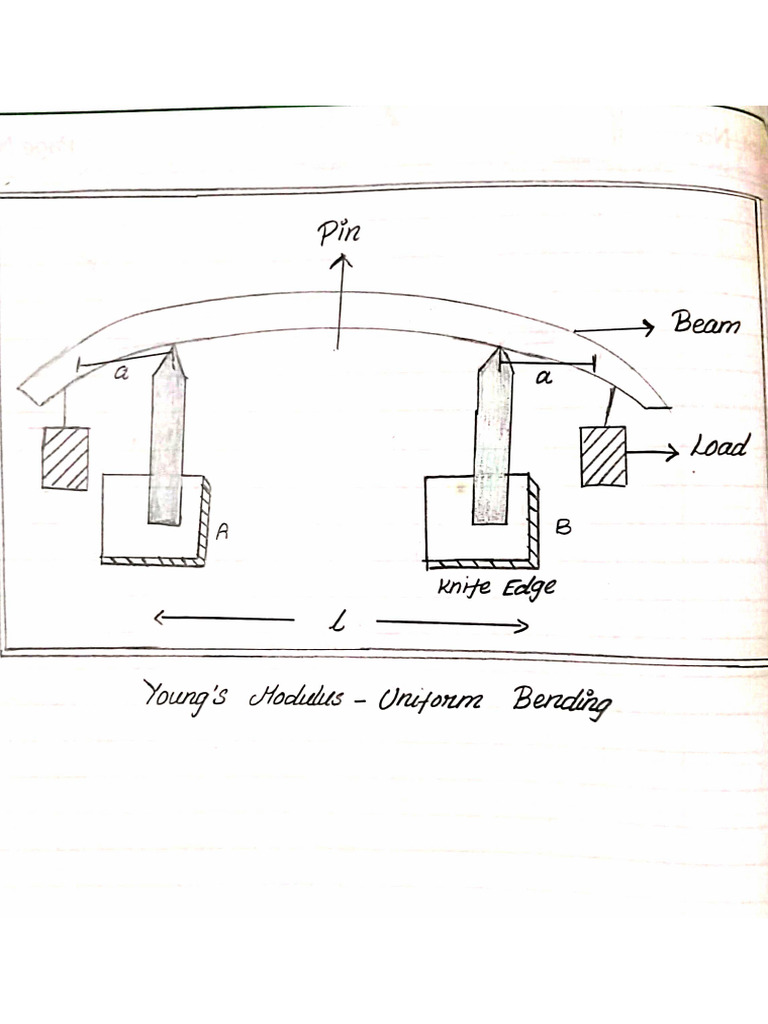 Pin
Beam
a
a
Load
A
B
Knife Edge
l
Young's Modulus - Uniform Bending